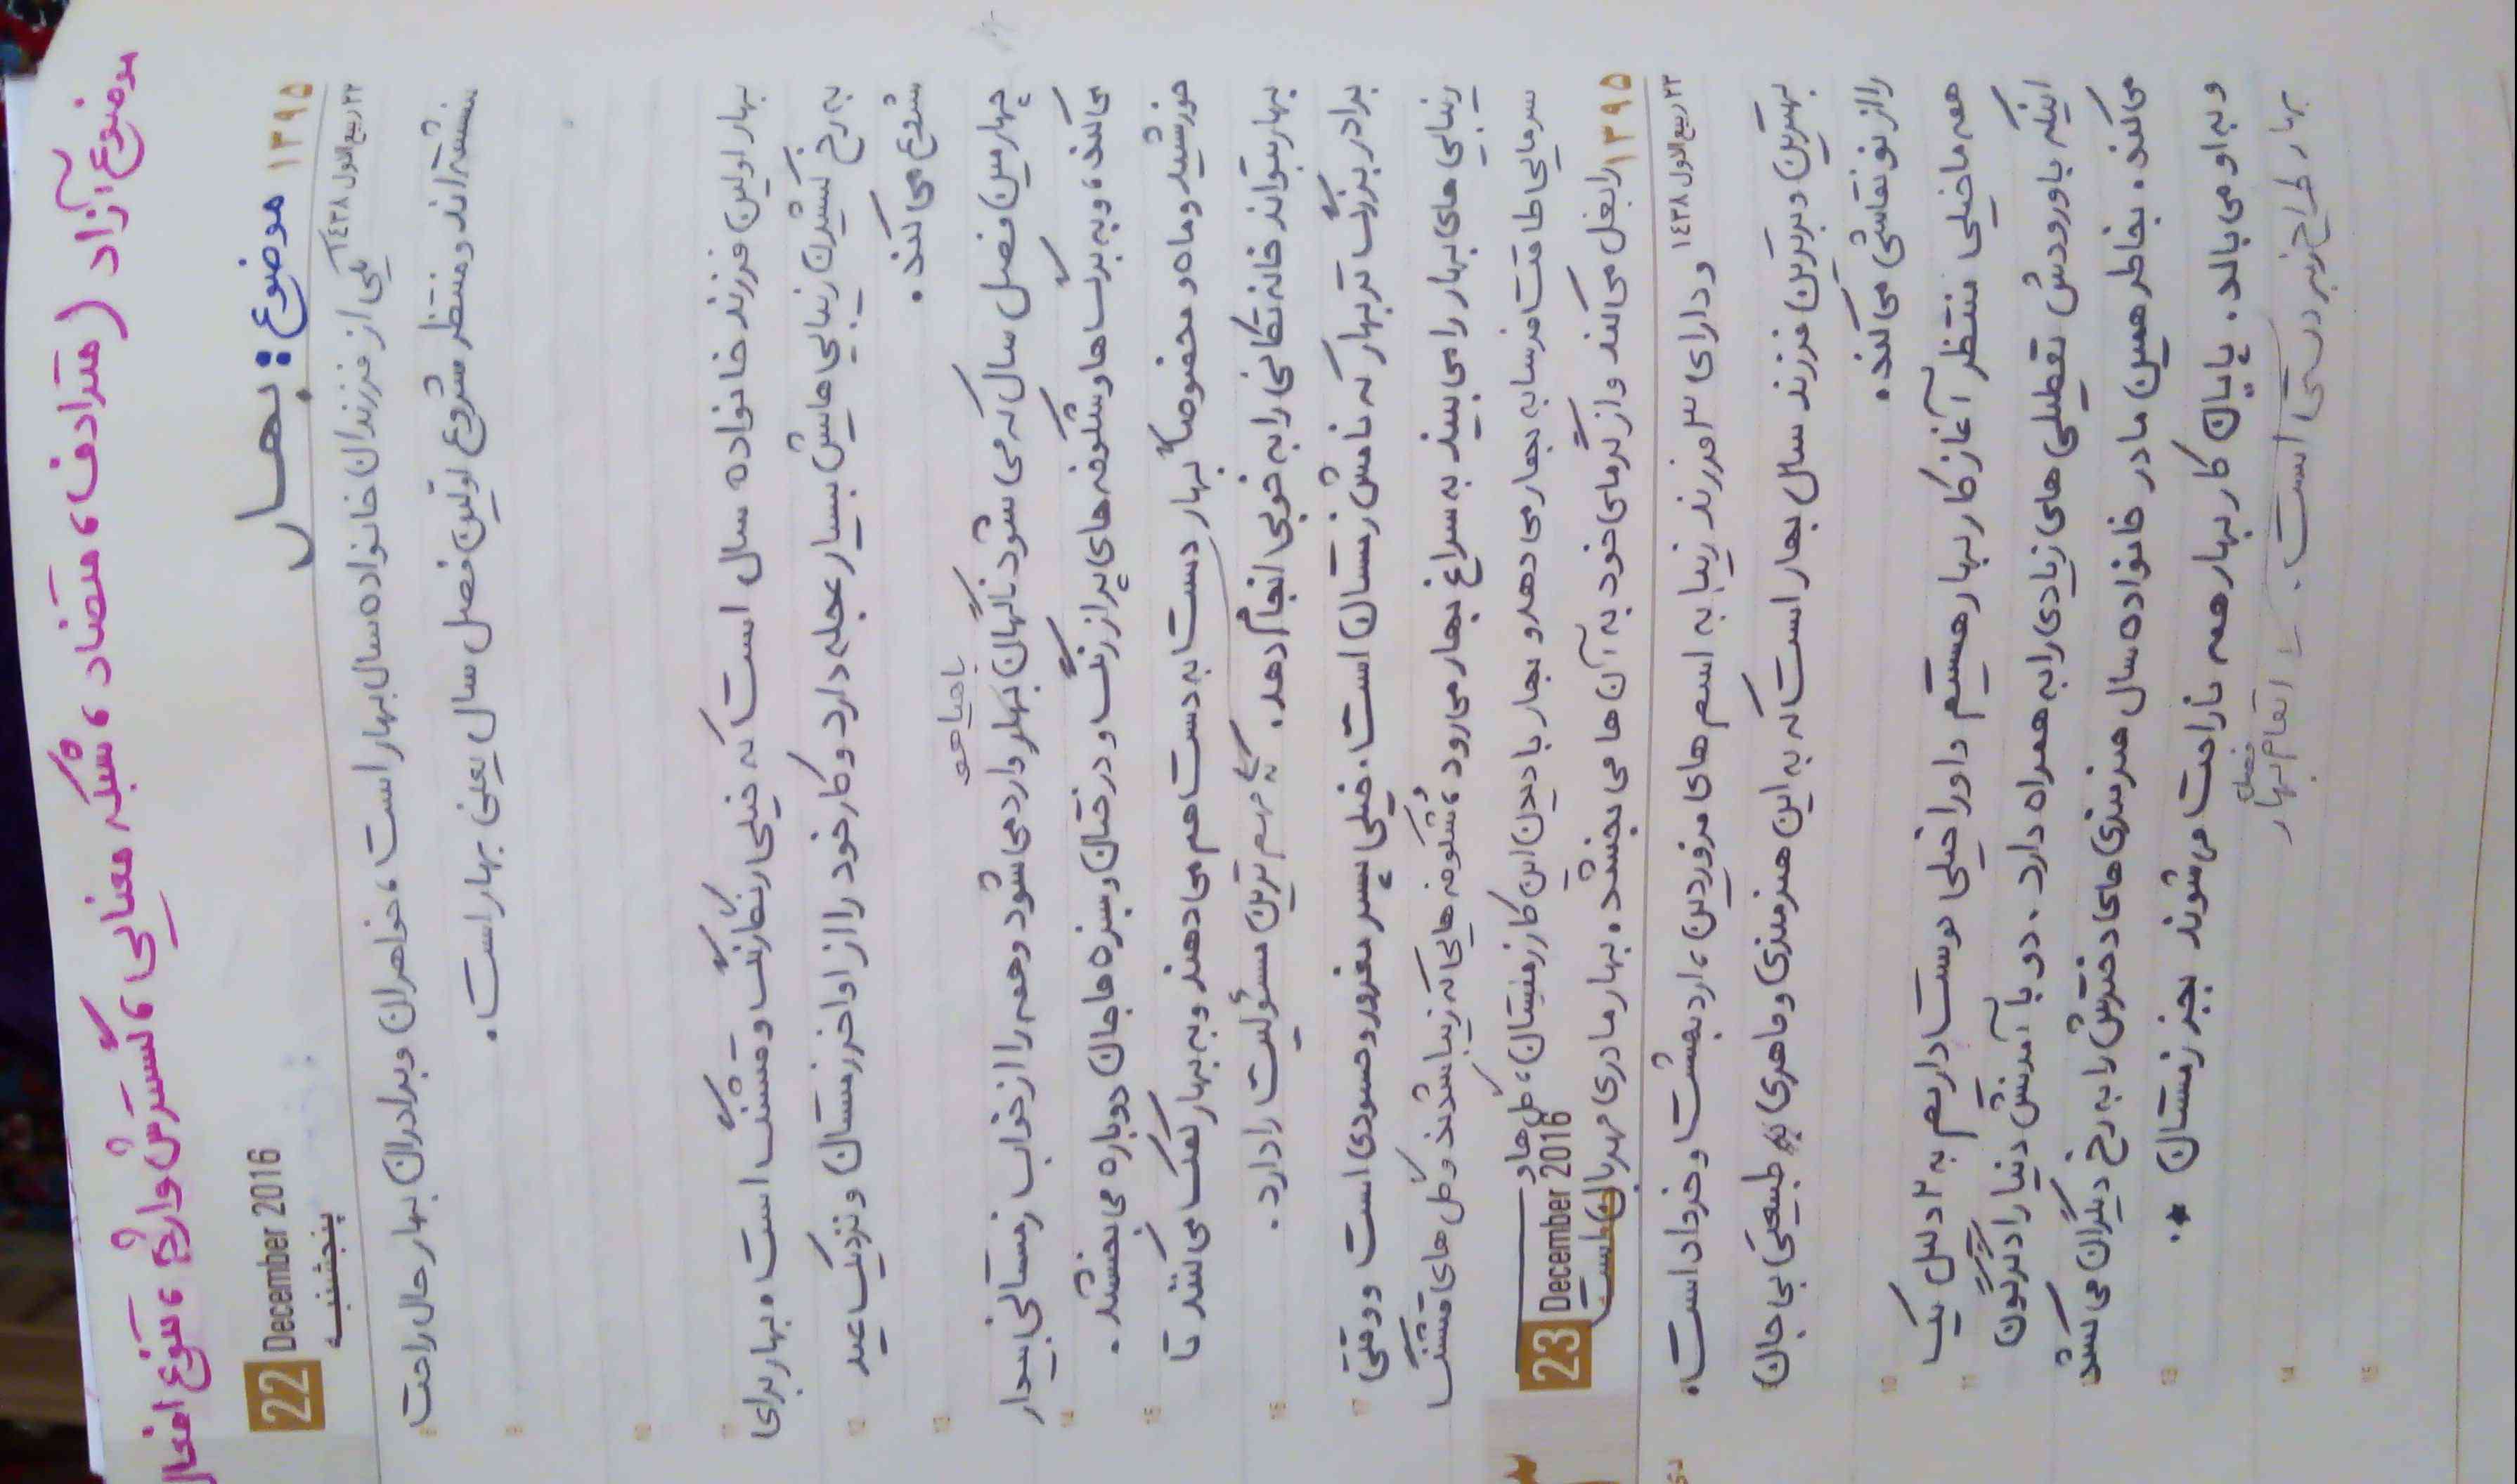 موضوع آزاد (مترادف، متضاد، شبکه معنایی، گسترش واژه، تنوع افعال
22 December 2016 موضوع: بهار ۱۳۹۵
پنجشنبه ۲۲ ربیع الاول ۱۴۳۸
یکی از فرزندان خانواده سال بهار است، خواهران و برادران بهار حال راحت
نشسته اند و منتظر شروع اولین فصل سال یعنی بهار است.
بهار اولین فرزند خانواده سال است که خیلی رنگارنگ و قشنگ است، بهار برای
به رخ کشیدن زیبایی هایش بسیار عجله دارد و کار خود را از اواخر زمستان و نزدیک عید
شروع می کند.
با هیاهو
چهارمین فصل سال که می شود ناگهان بهار وارد می شود و همه را از خواب زمستانی بیدار
می کند، و به برگ ها و شکوفه های پر از رنگ و درختان و سبزه ها جان دوباره می بخشد.
خورشید و ماه و مخصوصاً بهار دست به دست هم می دهند و به بهار کمک می کنند تا
بهار بتواند خانه تکانی را به خوبی انجام دهد. که مهم ترین مسئولیت را دارد.
برادر بزرگ تر بهار که نامش زمستان است. خیلی پسر مغرور و حسودی است و وقتی
زیبایی های بهار را می بیند به سراغ بهار می رود، شکوفه هایی که زیبا شدند و گل های قشنگ
سرمایی طاقت فرسا به بهار می دهد و بهار با دیدن این کار زمستان، گل ها و
23 December 2016 ۱۳۹۵
را بغل می کند و از گرمای خود به آن ها می بخشد. بهار مادری مهربان است
۲۳ ربیع الاول ۱۴۳۸
و دارای ۳ فرزند زیبا به اسم های فروردین، اردیبهشت و خرداد است.
بهترین و برترین فرزند سال بهار است که به این هنرمندی و ماهری طبیعتی بی جان
را از نو نقاشی می کند.
همه ما خیلی منتظر آغاز کار بهار هستیم و او را خیلی دوست داریم به ۲ دلیل یک
اینکه با ورودش تعطیلی های زیادی را به همراه دارد. دو با آمدنش دنیا را دگرگون
می کند. بخاطر همین مادر خانواده سال هنرمندی های دخترش را به رخ دیگران می کشد
و به او می بالد. پایان کار بهار همه ناراحت می شوند بجز زمستان *.
بهار طراح زبردستی است. اتمام فصل بهار